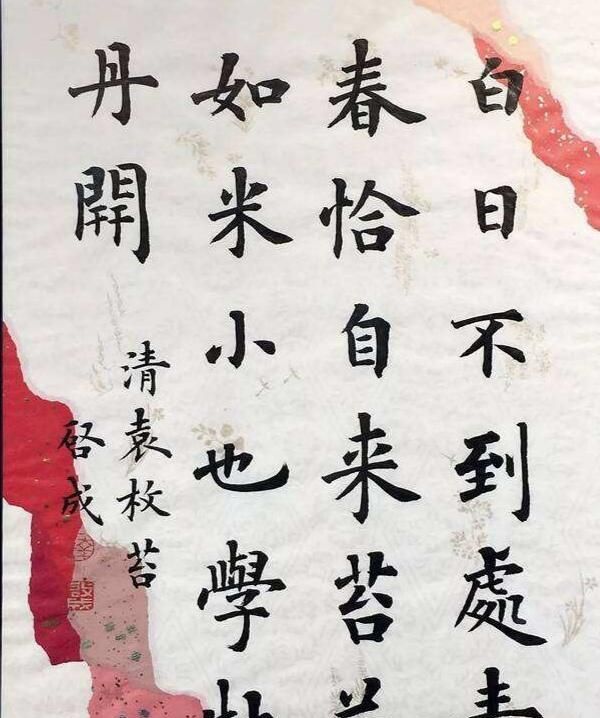 白日不到處青
春恰自来苔花
如米小也學牡
丹開
清袁枚苔
啓成